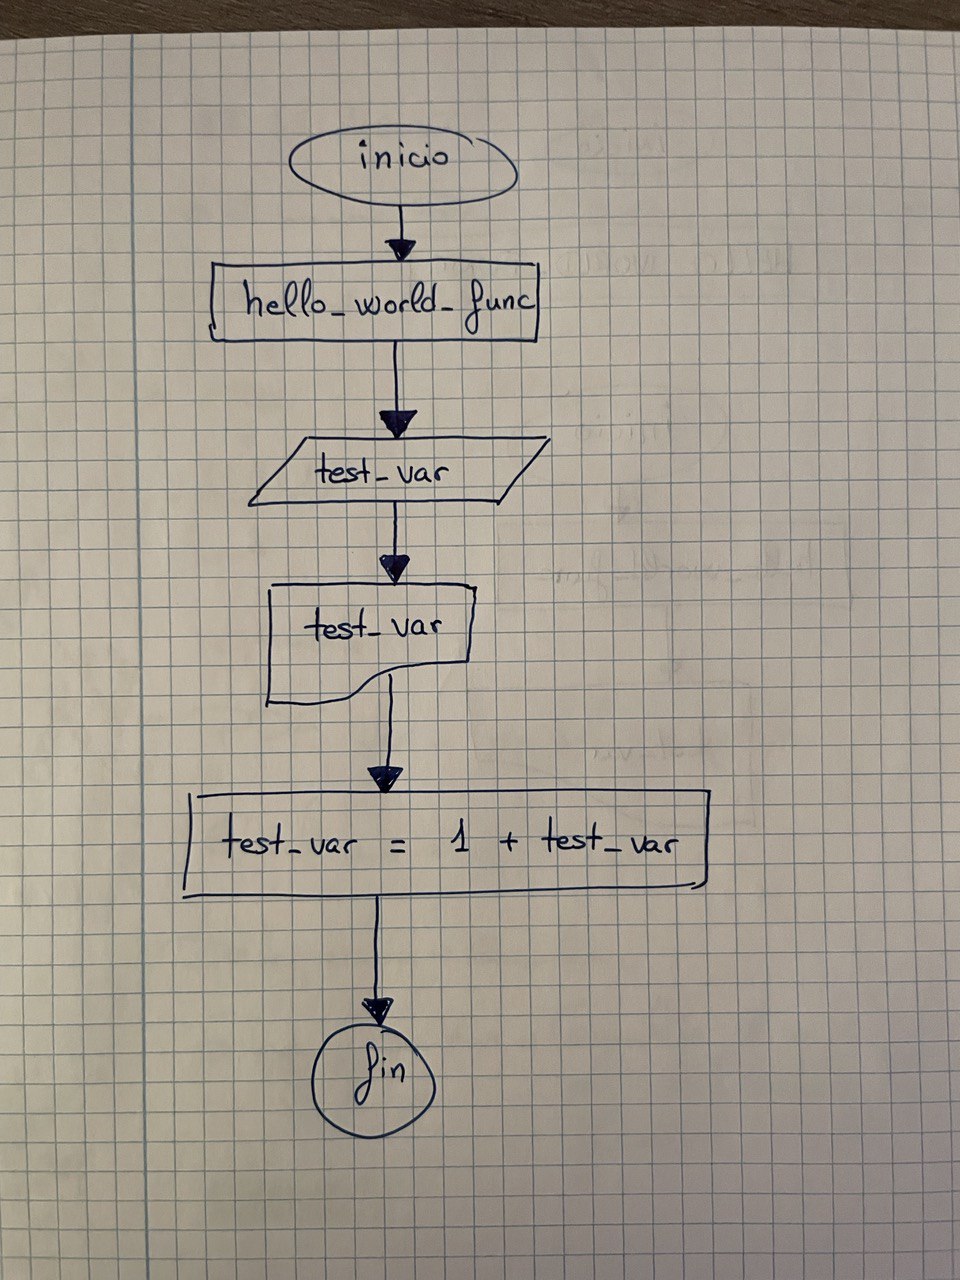 inicio
hello_world_func
test_var
test_var
test_var = 1 + test_var
fin